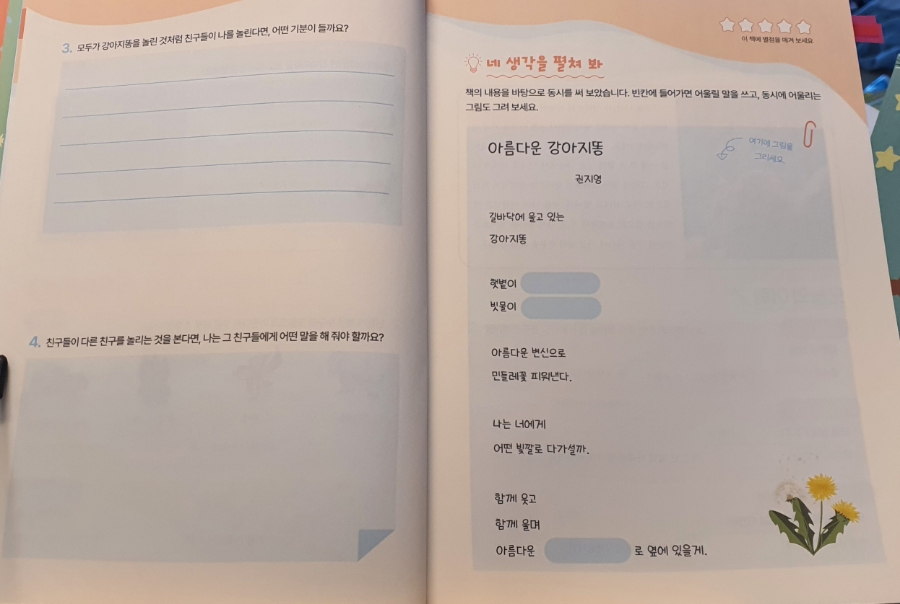 3. 모두가 강아지똥을 놀린 것처럼 친구들이 나를 놀린다면, 어떤 기분이 들까요?
4. 친구들이 다른 친구를 놀리는 것을 본다면, 나는 그 친구들에게 어떤 말을 해 줘야 할까요?
이 책에 별점을 매겨 보세요
네 생각을 펼쳐 봐
책의 내용을 바탕으로 동시를 써 보았습니다. 빈칸에 들어가면 어울릴 말을 쓰고, 동시에 어울리는
그림도 그려 보세요.
여기에 그림을
그리세요.
아름다운 강아지똥
권지영
길바닥에 울고 있는
강아지똥
햇볕이
빗물이
아름다운 변신으로
민들레꽃 피워낸다.
나는 너에게
어떤 빛깔로 다가설까.
함께 웃고
함께 울며
아름다운 로 옆에 있을게.